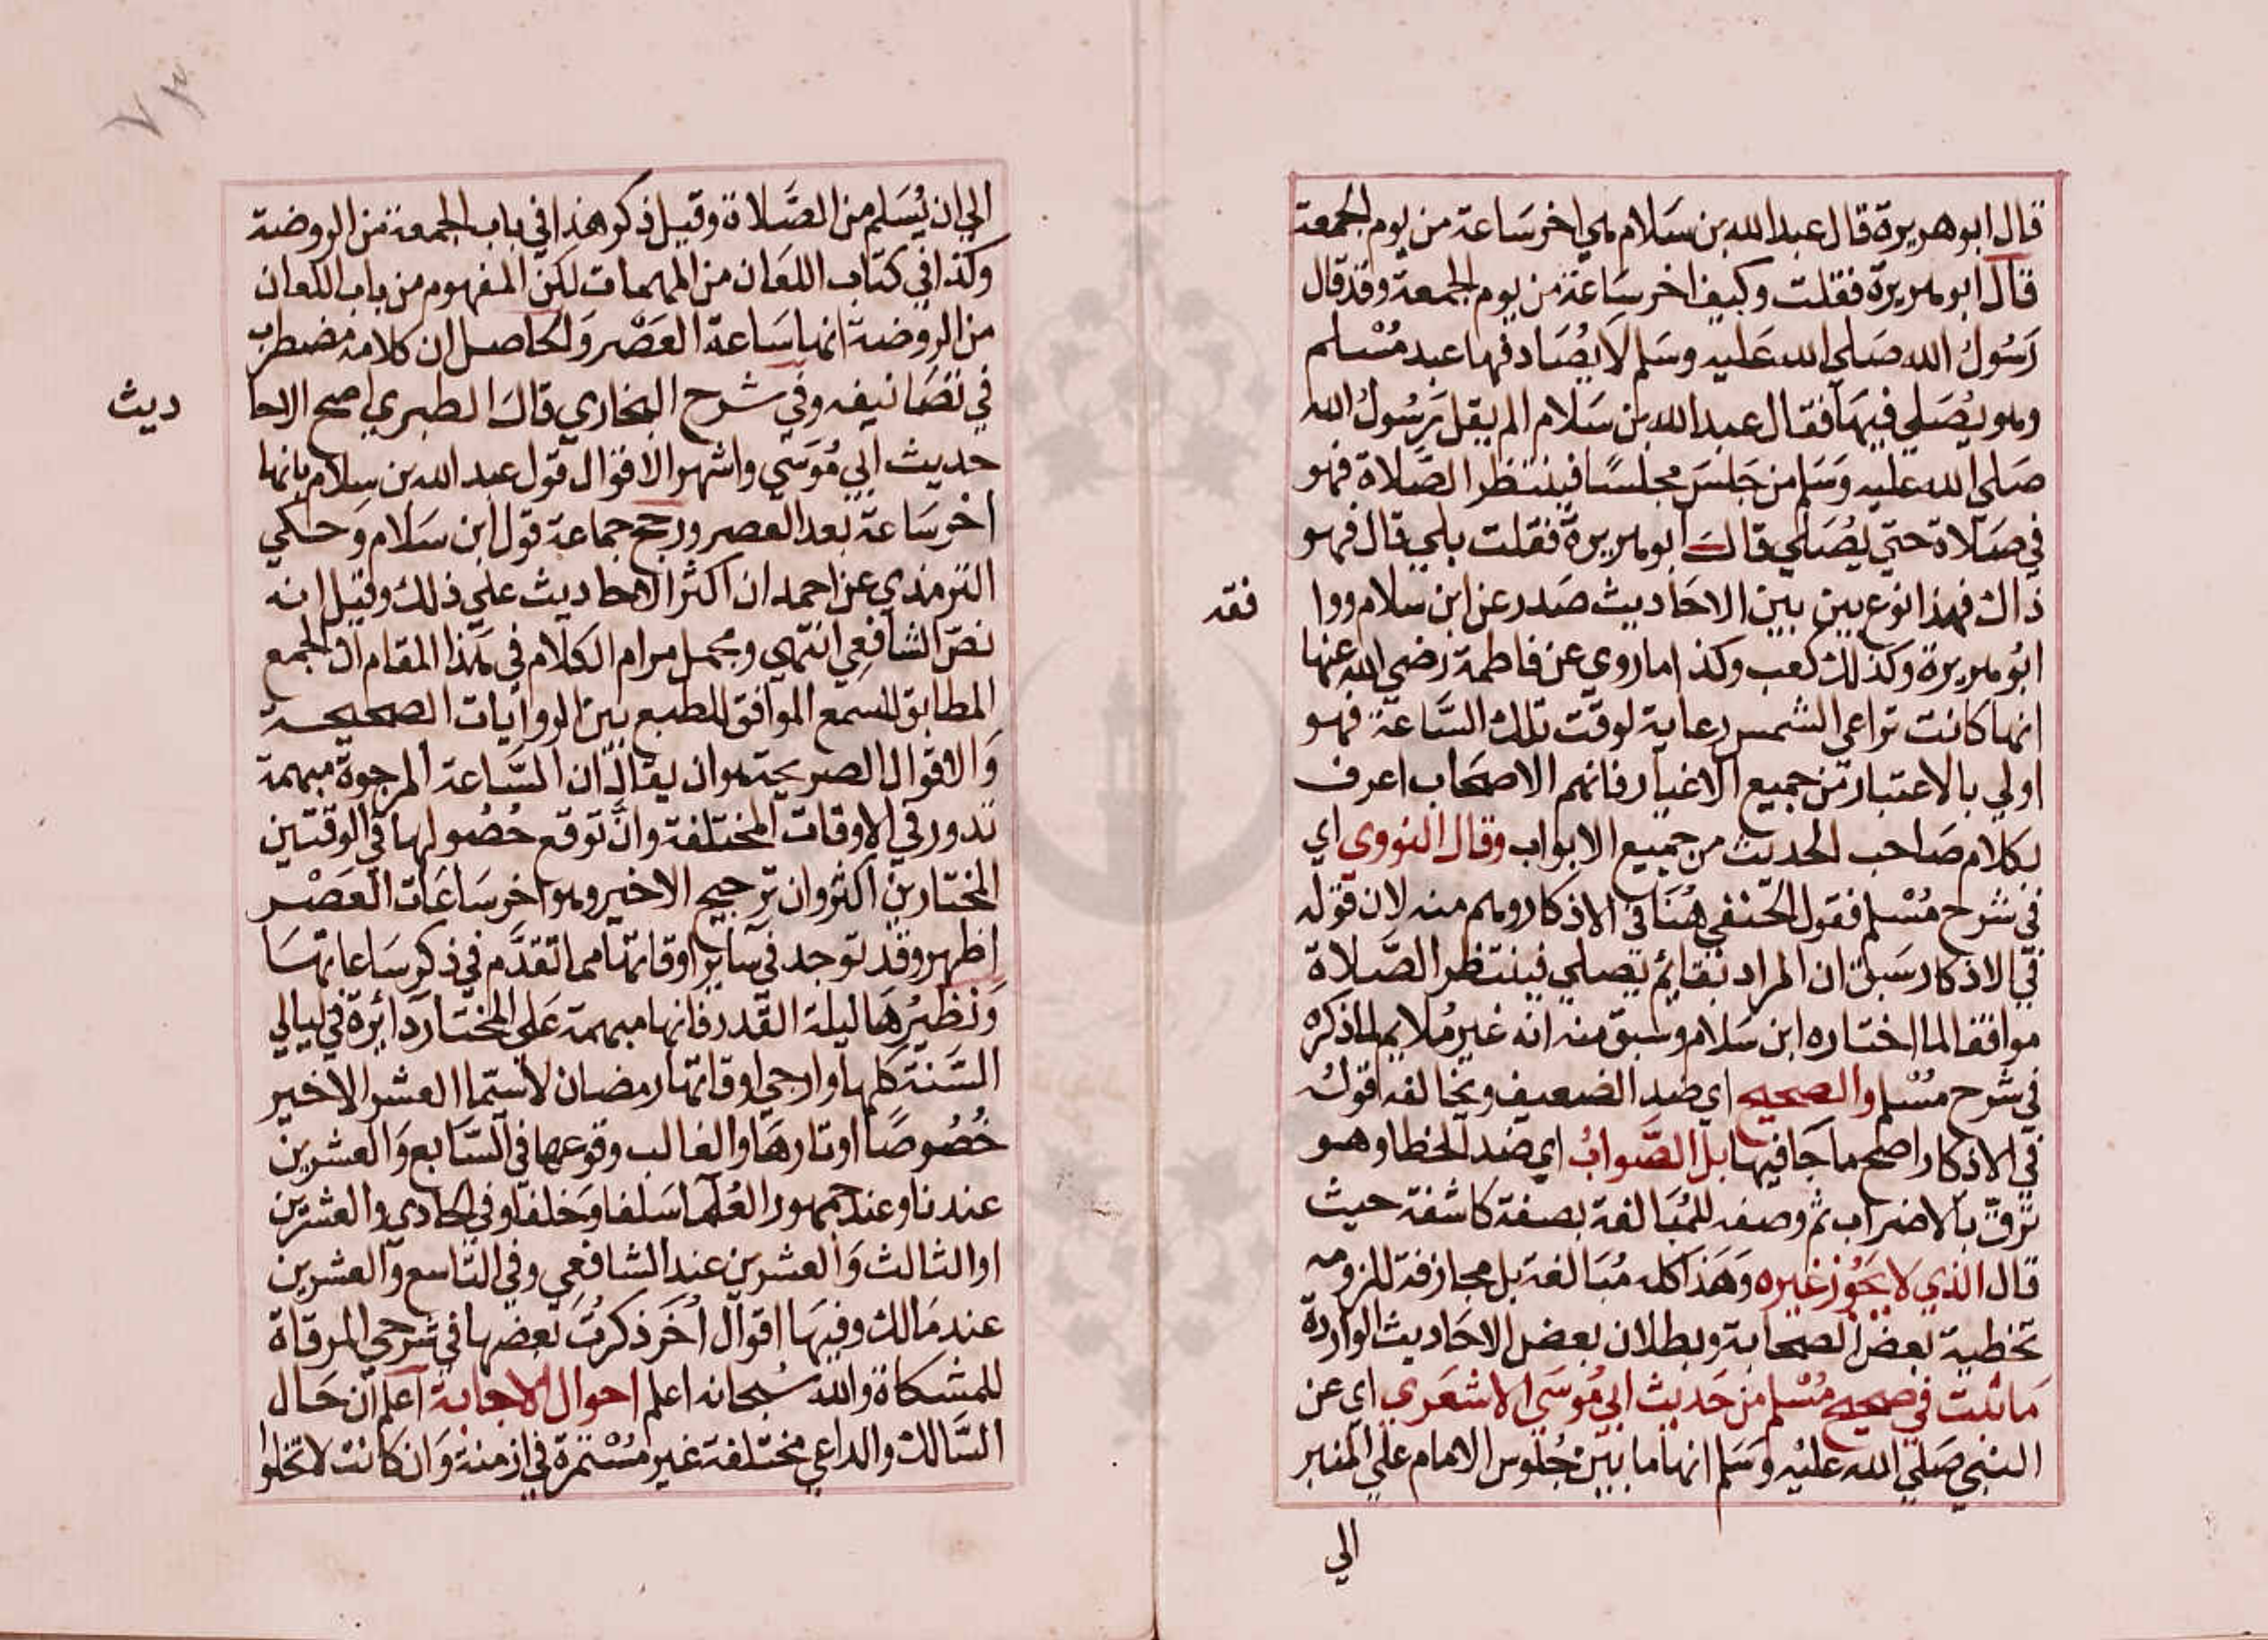 قال ابو هريرة قال عبد الله بن سلام هي اخر ساعة من يوم الجمعة
قال ابو هريرة فقلت وكيف اخر ساعة من يوم الجمعة وقد قال
رسول الله صلي الله عليه وسلم لا يصادفها عبد مسلم
وهو يصلي فيها فقال عبد الله بن سلام الم يقل رسول الله
صلي الله عليه وسلم من جلس مجلسا فينتظر الصلاة فهو
في صلاة حتي يصلي قال ابو هريرة فقلت بلي قال فهو
ذاك فهذا نوع بين بين الاحاديث صدر عن ابن سلام ووا
فقه
ابو هريرة وكذلك كعب وكذا ما روي عن فاطمة رضي الله عنها
انها كانت تراعي الشمس رعاية لوقت تلك الساعة فهو
اولي بالاعتبار من جميع الاغيار فانهم الاصحاب اعرف
بكلام صاحب الحديث من جميع الابواب وقال النووي اي
في شرح مسلم فقول الحنفي هنا في الاذكار وهم منه لان قوله
في الاذكار سبق ان المراد بقائم يصلي فينتظر الصلاة
موافقا لما اختاره ابن سلام وسبق منه انه غير ملايم لما ذكره
في شرح مسلم والصحيح اي ضد الضعيف ويخالفه قوله
في الاذكار اصح ما جا فيها بل الصواب اي ضد الخطا وهو
ترق بالاضراب ثم وصفه للمبالغة بصفة كاشفة حيث
قال الذي لا يجوز غيره وهذا كله مبالغة بل مجازفة للزومه
تخطية بعض الصحابة وبطلان بعض الاحاديث الواردة
ما ثبت في صحيح مسلم من حديث ابي موسي الاشعري اي عن
النبي صلي الله عليه وسلم انها ما بين جلوس الامام علي المنبر
الي
الي ان يسلم من الصلاة وقيل ذكر هذا في باب الجمعة من الروضة
وكذا في كتاب اللعان من المهمات لكن المفهوم من باب اللعان
من الروضة انها ساعة العصر والحاصل ان كلامه مضطرب
في تصانيفه وفي شرح البخاري قال الطبري اصح الاحا
ديث
حديث ابي موسي واشهر الاقوال قول عبد الله بن سلام بانها
اخر ساعة بعد العصر ورجح جماعة قول ابن سلام وحكي
الترمذي عن احمد ان اكثر الاحاديث علي ذلك وقيل انه
نص الشافعي انتهي ومجمل مرام الكلام في هذا المقام ان الجمع
المطابق للسمع الموافق للطبع بين الروايات الصحيحة
والاقوال الصريحة هو ان يقال ان الساعة المرجوة مبهمة
تدور في الاوقات المختلفة وان توقع حصولها في الوقتين
المختارين اكثر وان ترجيح الاخير وهو اخر ساعات العصر
اظهر وقد توجد في ساير اوقاتها مما تقدم في ذكر ساعاتها
ونظيرها ليلة القدر فانها مبهمة علي المختار دائرة في ليالي
السنة كلها وارجي اوقاتها رمضان لا سيما العشر الاخير
خصوصا اوتارها والغالب وقوعها في السابع والعشرين
عندنا وعند جمهور العلما سلفا وخلفا وفي الحادي والعشرين
او الثالث والعشرين عند الشافعي وفي التاسع والعشرين
عند مالك وفيها اقوال اخر ذكرت بعضها في شرحي المرقاة
للمشكاة والله سبحانه اعلم احوال الاجابة اعلم ان حال
السالك والداعي مختلفة غير مستمرة في ازمنة وان كانت لا تخلوا